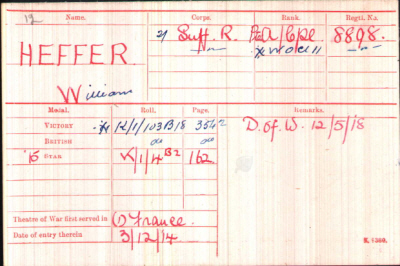 12 Name. Corps. Rank. Regtl. No.
HEFFER 2/ Suff. R. Pte A/Cpl 8898.
William
Medal. Roll. Page. Remarks.
VICTORY K/1/103B18 3542 D. of W. 12/5/18
BRITISH do do
'15 STAR K/1/4 B2 162
Theatre of War first served in (1) France.
Date of entry therein 3/12/14
K. 1380.